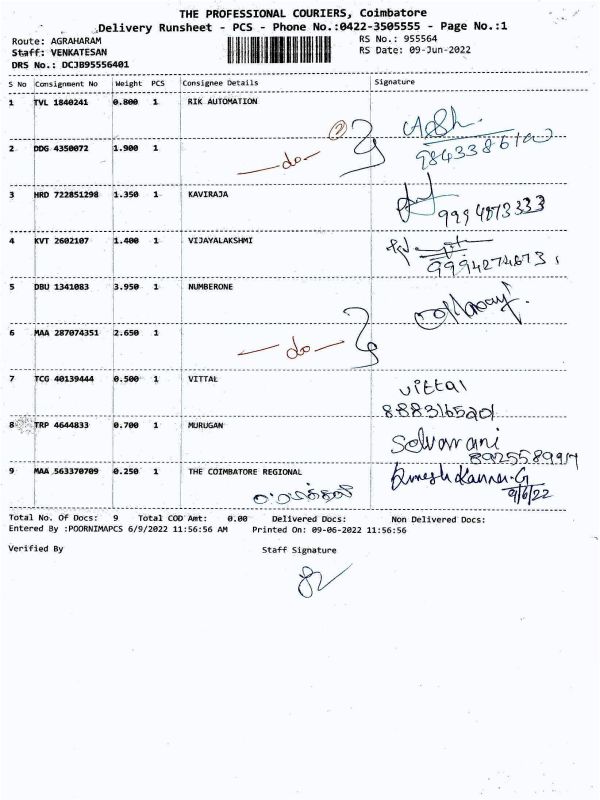 THE PROFESSIONAL COURIERS, Coimbatore
Delivery Runsheet - PCS - Phone No.:0422-3505555 - Page No.:1
Route: AGRAHARAM RS No.: 955564
Staff: VENKATESAN RS Date: 09-Jun-2022
DRS No.: DCJB95556401
S No Consignment No Weight PCS Consignee Details Signature
1 TVL 1840241 0.800 1 RIK AUTOMATION
2 DDG 4350072 1.900 1 —do—
3 HRD 722851298 1.350 1 KAVIRAJA
4 KVT 2602107 1.400 1 VIJAYALAKSHMI
9994274673
5 DBU 1341083 3.950 1 NUMBERONE
6 MAA 287074351 2.650 1 —do—
7 TCG 40139444 0.500 1 VITTAL vittal
8883165201
8 TRP 4644833 0.700 1 MURUGAN Selvarani
9 MAA 563370709 0.250 1 THE COIMBATORE REGIONAL
9/6/22
Total No. Of Docs: 9 Total COD Amt: 0.00 Delivered Docs: Non Delivered Docs:
Entered By :POORNIMAPCS 6/9/2022 11:56:56 AM Printed On: 09-06-2022 11:56:56
Verified By Staff Signature